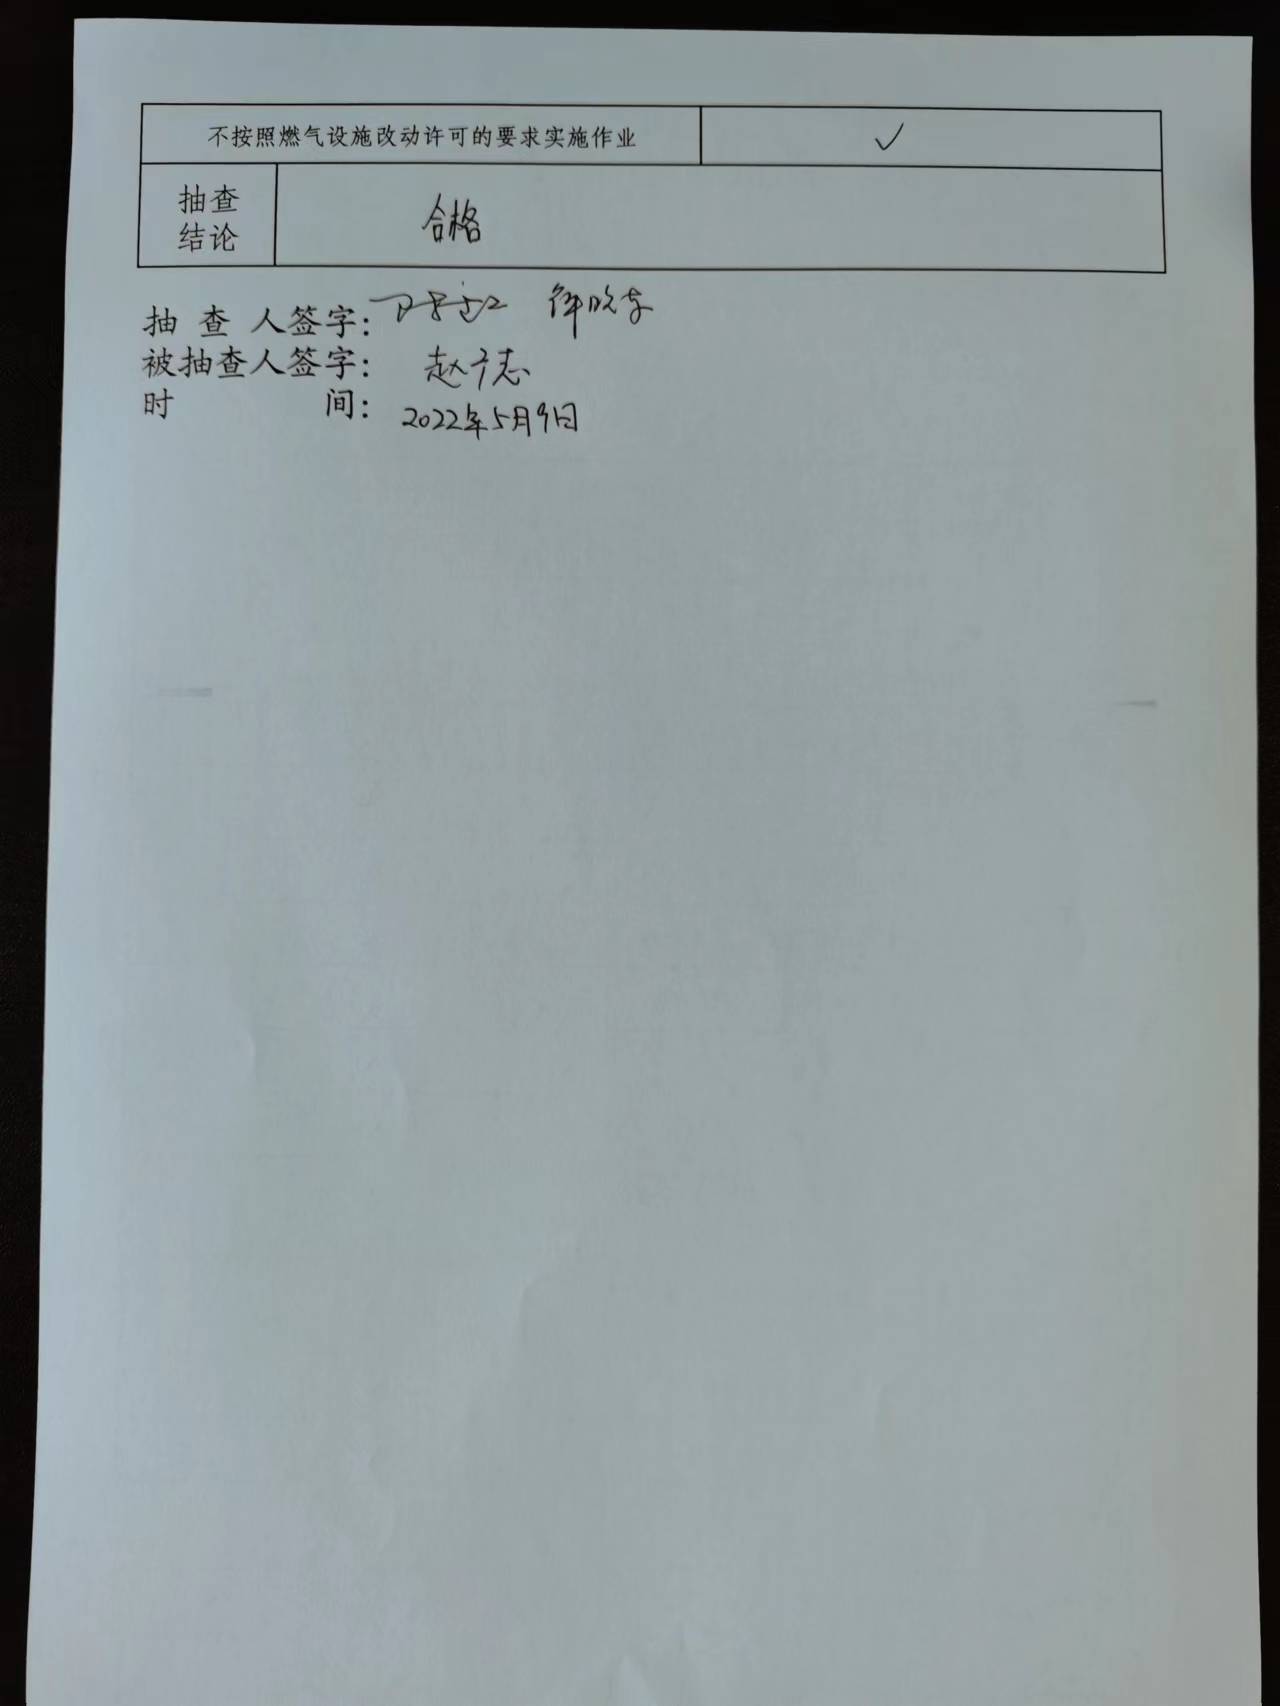 不按照燃气设施改动许可的要求实施作业 ✓
抽查
结论
合格
抽 查 人签字：
被抽查人签字： 赵广志
时 间： 2022年5月9日